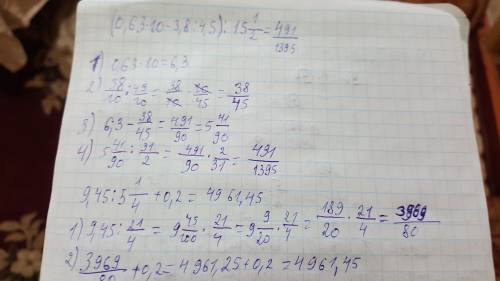 (0,63·10-3,8:45):15 1/2=491/1395
1) 0,63·10=6,3
2) 38/10:45/10=38/10·10/45=38/45
3) 6,3-38/45=491/90=5 41/90
4) 5 41/90:31/2=491/90·2/31=491/1395
9,45:5 1/4+0,2=4961,45
1) 9,45:21/4=9 45/100·21/4=9 9/20·21/4=189/20·21/4=3969/80
2) 3969/80+0,2=4961,25+0,2=4961,45